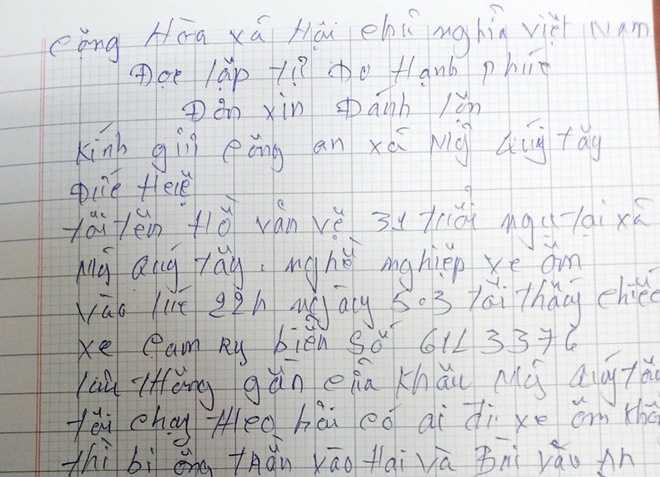 Cộng Hòa xã Hội chủ nghĩa việt Nam
Độc lập tự Do Hạnh phúc
Đơn xin Đánh lộn
Kính gửi công an xã Mỹ Quý tây
Đức Huệ
tôi tên Hồ văn vẽ 31 tuổi ngụ tại xã
Mỹ Quý tây. nghề nghiệp xe ôm
vào lúc 22h ngày 5.3 tôi thấy chiếc
xe Camry biển số 61L 3376
lưu thông gần cửa khẩu Mỹ Quý tây
tôi chạy theo hỏi có ai đi xe ôm
thì bị ông trần vào Hai và Bùi văn An